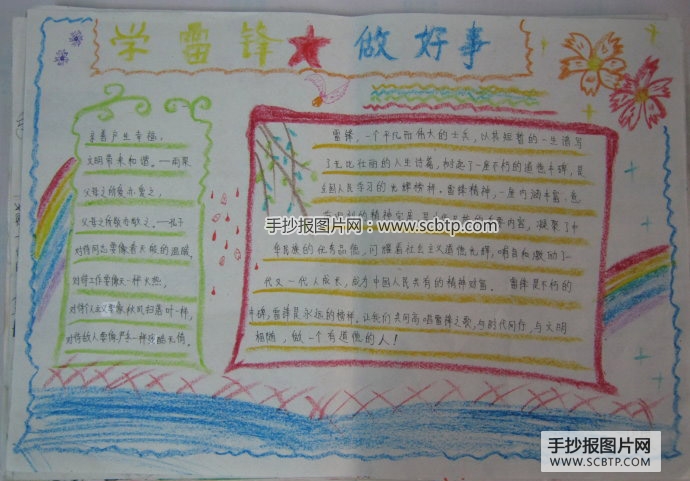 学雷锋★做好事
善产生幸福,
文明带来和谐。——雨果
父母之所爱亦爱之,
父母之所敬亦敬之。——孔子
对待同志要像春天般的温暖,
对待工作要像夏天一样火热,
对待个人主义要像秋风扫落叶一样,
对待敌人要像严冬一样残酷无情。
雷锋,一个平凡而伟大的士兵,以其短暂的一生谱写
了无比壮丽的人生诗篇,树起了一座不朽的道德丰碑,是
全国人民学习的光辉榜样。雷锋精神,一座内涵丰富、意
手抄报图片网:www.scbtp.com
华民族的优秀品德,闪耀着社会主义道德光辉,哺育和激励了一
代又一代人成长,成为中国人民共有的精神财富。 雷锋是不朽的
丰碑;雷锋是永远的榜样,让我们共同高唱雷锋之歌,与时代同行,与文明
相随,做一个有道德的人!
手抄报图片网
WWW.SCBTP.COM